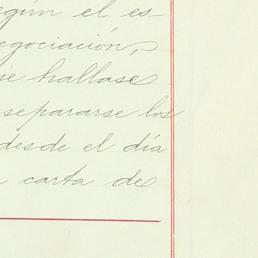 egún el es-
egociación,
se hallase
separarse los
desde el día
carta de